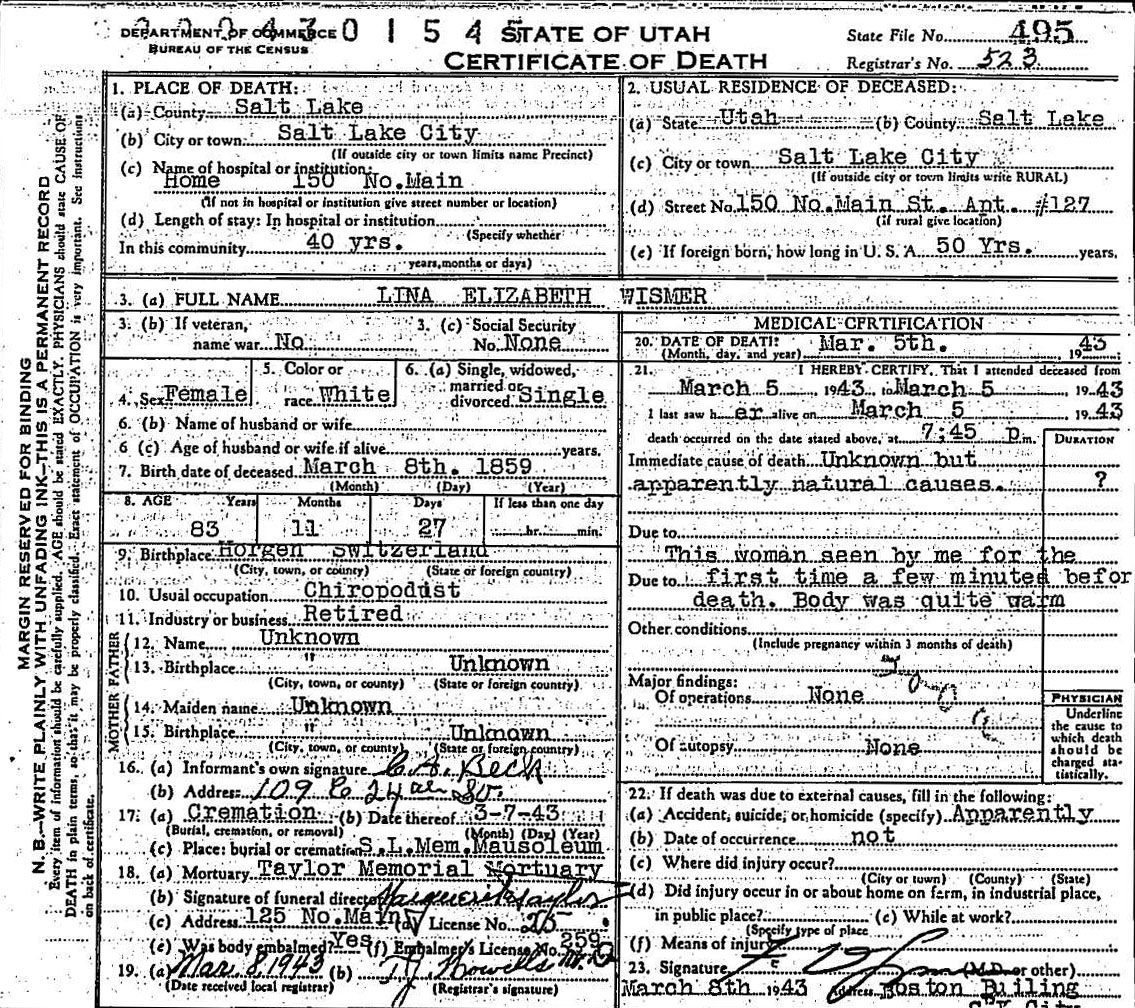 DEPARTMENT OF COMMERCE
BUREAU OF THE CENSUS
0 1 5 4 5
STATE OF UTAH
CERTIFICATE OF DEATH
State File No. 495
Registrar's No. 523
MARGIN RESERVED FOR BINDING
N. B.—WRITE PLAINLY WITH UNFADING INK—THIS IS A PERMANENT RECORD
Every item of information should be carefully supplied. AGE should be stated EXACTLY. PHYSICIANS should state CAUSE OF
DEATH in plain terms, so that it may be properly classified. Exact statement of OCCUPATION is very important. See instructions
on back of certificate.
1. PLACE OF DEATH:
(a) County Salt Lake
(b) City or town Salt Lake City
(If outside city or town limits name Precinct)
(c) Name of hospital or institution:
Home 150 No.Main
(If not in hospital or institution give street number or location)
(d) Length of stay: In hospital or institution
(Specify whether
In this community 40 yrs.
years, months or days)
2. USUAL RESIDENCE OF DECEASED:
(a) State Utah (b) County Salt Lake
(c) City or town Salt Lake City
(If outside city or town limits write RURAL)
(d) Street No. 150 No.Main St. Apt. #127
(if rural give location)
(e) If foreign born, how long in U. S. A. 50 Yrs. years.
3. (a) FULL NAME LINA ELIZABETH WISMER
3. (b) If veteran, name war No
3. (c) Social Security No. None
4. Sex Female
5. Color or race White
6. (a) Single, widowed, married or divorced Single
6. (b) Name of husband or wife
6 (c) Age of husband or wife if alive years.
7. Birth date of deceased March 8th. 1859
(Month) (Day) (Year)
8. AGE Years Months Days If less than one day
83 11 27 hr. min.
9. Birthplace Horgen Switzerland
(City, town, or county) (State or foreign country)
10. Usual occupation Chiropodist
11. Industry or business Retired
FATHER
12. Name Unknown
13. Birthplace " Unknown
(City, town, or county) (State or foreign country)
MOTHER
14. Maiden name Unknown
15. Birthplace " Unknown
(City, town, or county) (State or foreign country)
16. (a) Informant's own signature C. A. Beck
(b) Address 109 24 So.
17. (a) Cremation (b) Date thereof 3-7-43
(Burial, cremation, or removal) (Month) (Day) (Year)
(c) Place: burial or cremation S.L.Mem.Mausoleum
18. (a) Mortuary Taylor Memorial Mortuary
(b) Signature of funeral director Marguerite Taylor
(c) Address 125 No.Main (d) License No. 25
(e) Was body embalmed? Yes (f) Embalmer's License No. 259
19. (a) Mar 8, 1943 (b) T J Howells M.D
(Date received local registrar) (Registrar's signature)
MEDICAL CERTIFICATION
20. DATE OF DEATH: Mar. 5th. 1943
(Month, day, and year)
21. I HEREBY CERTIFY, That I attended deceased from
March 5 1943 to March 5 1943
I last saw her alive on March 5 1943
death occurred on the date stated above, at 7:45 p m.
DURATION
Immediate cause of death Unknown but
apparently natural causes. ?
Due to
This woman seen by me for the
Due to first time a few minutes befor
death. Body was quite warm
Other conditions
(Include pregnancy within 3 months of death)
Major findings:
Of operations None
Of autopsy None
PHYSICIAN
Underline
the cause to
which death
should be
charged sta-
tistically.
22. If death was due to external causes, fill in the following:
(a) Accident, suicide, or homicide (specify) Apparently
(b) Date of occurrence not
(c) Where did injury occur?
(City or town) (County) (State)
(d) Did injury occur in or about home on farm, in industrial place,
in public place? (e) While at work?
(Specify type of place
(f) Means of injury
23. Signature (M.D. or other)
March 8th 1943 Address Boston Builing